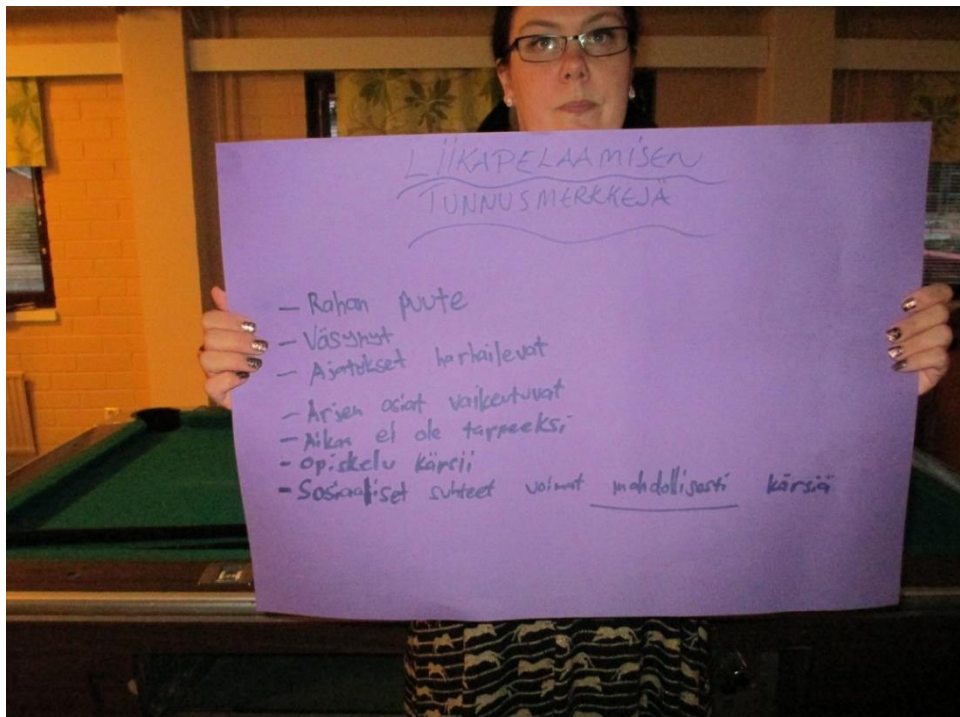 LIIKAPELAAMISEN
TUNNUSMERKKEJÄ
- Rahan puute
- Väsynyt
- Ajatukset harhailevat
- Arjen asiat vaikeutuvat
- Aikaa ei ole tarpeeksi
- Opiskelu kärsii
- Sosiaaliset suhteet voivat mahdollisesti kärsiä